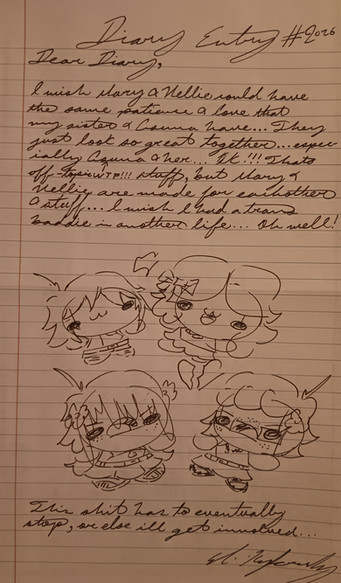 Diary Entry #2026
Dear Diary,
I wish Mary & Nellie could have
the same patience & love that
my sister & have... They
just look so great together... espec-
ially & her... IK!!! Thats
off-topic WTF!!! stuff, but Mary &
Nellie are made for eachother
& stuff... I wish I had a trans
baddie in another life... Oh well!
This shit has to eventually
stop, or else ill get involved...